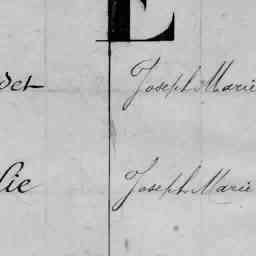 E
det Joseph Marie
lie Joseph Marie